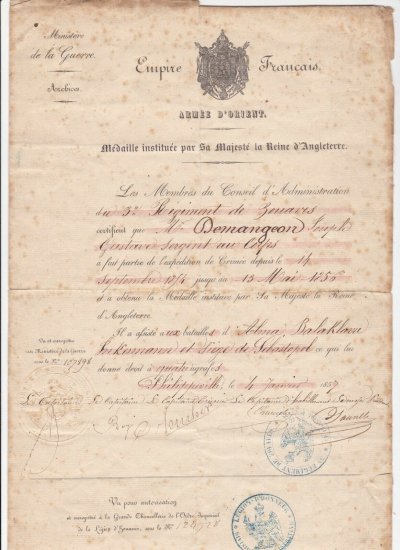 Ministère
de la Guerre.
Archives.
Empire Français.
ARMÉE D'ORIENT.
Médaille instituée par Sa Majesté la Reine d'Angleterre.
Les Membres du Conseil d'Administration
du 3e Régiment de Zouaves
certifient que Mr Demangeon Joseph
Gustave Sergent au Corps
a fait partie de l'expédition de Crimée depuis le 14
Septembre jusqu'au 13 Mai 1856
et a obtenu la Médaille instituée par Sa Majesté la Reine
d'Angleterre.
Il a assisté aux batailles d'Alma, Balaklava
Inkermann et Siège de Sébastopol ce qui lui
donne droit à quatre agrafes.
Philippeville, le 4 Janvier 1857
Vu et enregistré
au Ministère de la Guerre
sous le No
Le Capitaine
Le Capitaine d'habillement
Vu pour autorisation
et enregistré à la Grande Chancellerie de l'Ordre Impérial
de la Légion d'Honneur, sous le No
LÉGION D'HONNEUR